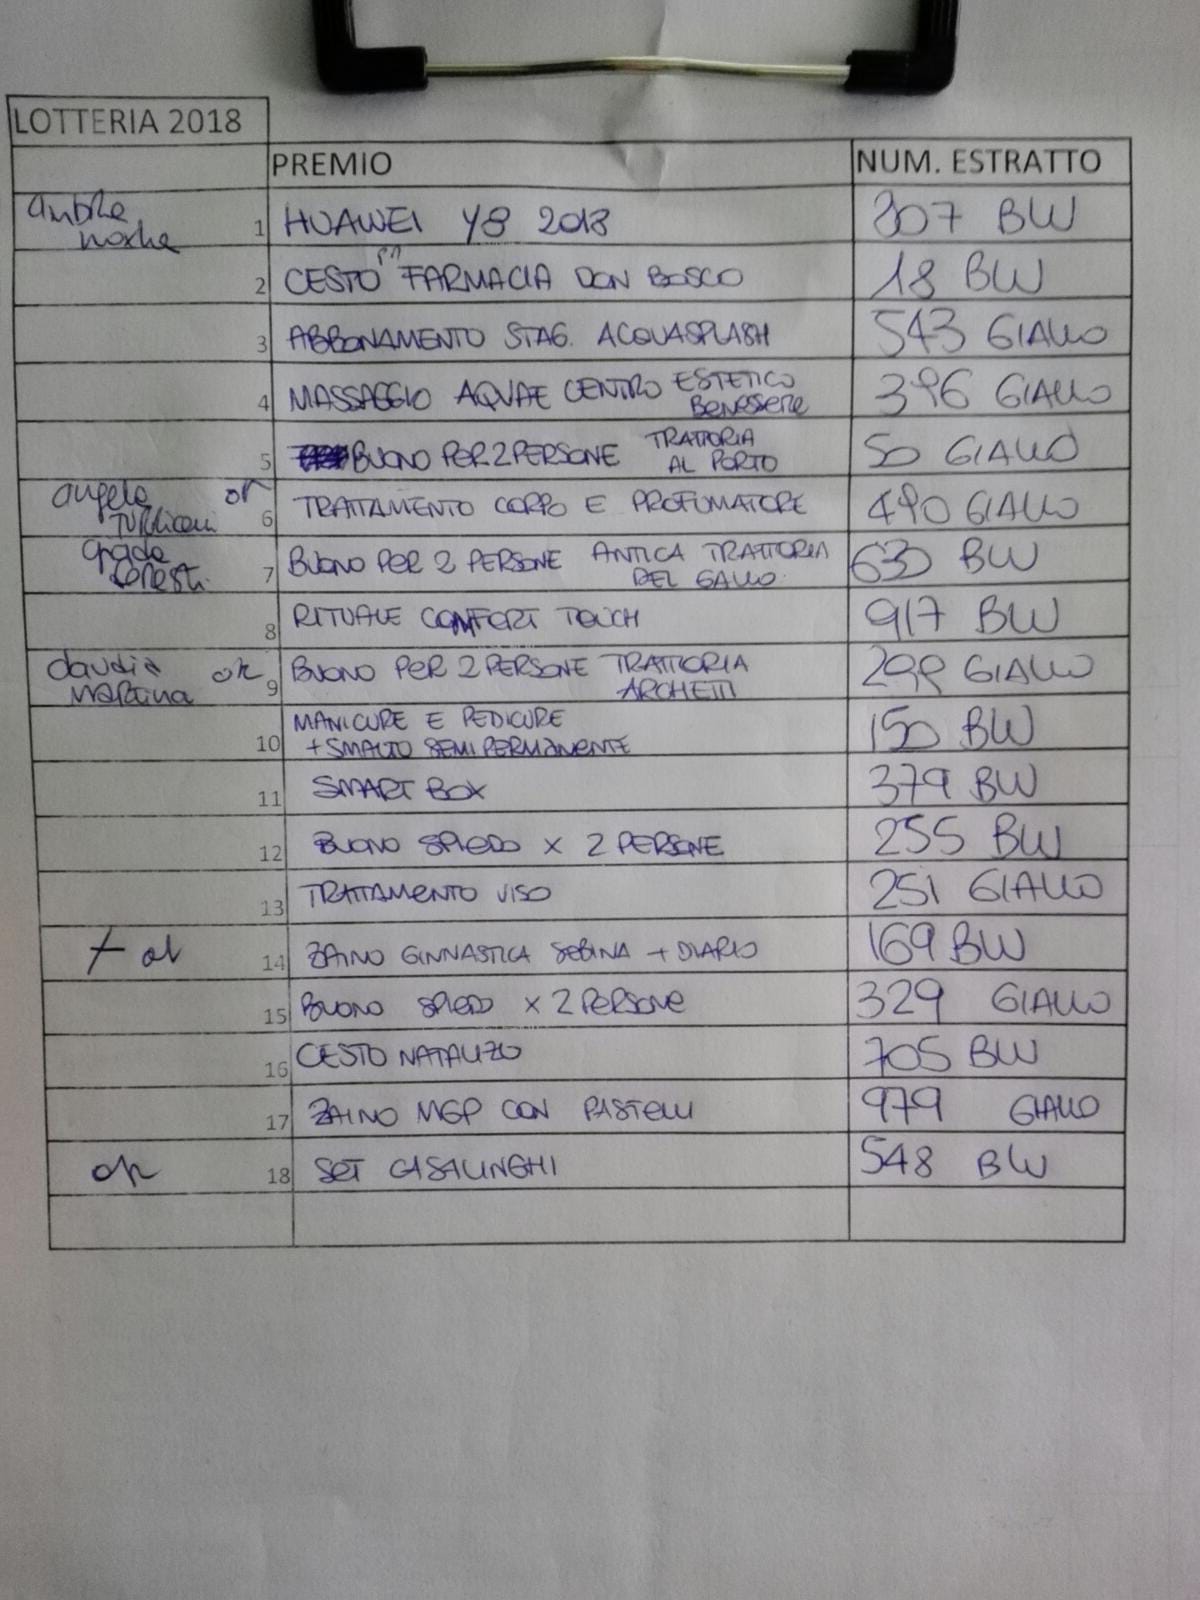 LOTTERIA 2018
PREMIO NUM. ESTRATTO
1 HUAWEI Y8 2018 807 BW
2 CESTO FARMACIA DON BOSCO 18 BW
3 ABBONAMENTO STAG. ACQUASPLASH 543 GIALLO
4 MASSAGGIO AQVAE CENTRO ESTETICO BENESSERE 396 GIALLO
5 BUONO PER 2 PERSONE TRATTORIA AL PORTO 50 GIALLO
angelo ok 6 TRATTAMENTO CORPO E PROFUMATORE 490 GIALLO
7 BUONO PER 2 PERSONE ANTICA TRATTORIA DEL GALLO 630 BW
8 RITUALE COMFORT TOUCH 917 BW
claudia martina ok 9 BUONO PER 2 PERSONE TRATTORIA ARCHETTI 299 GIALLO
10 MANICURE E PEDICURE
+ SMALTO SEMIPERMANENTE 150 BW
11 SMART BOX 379 BW
12 BUONO SPIEDO X 2 PERSONE 255 BW
13 TRATTAMENTO VISO 251 GIALLO
ok 14 ZAINO GINNASTICA SEBINA + DIARIO 169 BW
15 BUONO SPIEDO X 2 PERSONE 329 GIALLO
16 CESTO NATALIZIO 705 BW
17 ZAINO MGP CON PASTELLI 979 GIALLO
ok 18 SET CASALINGHI 548 BW